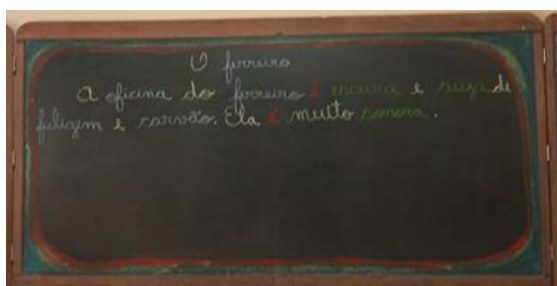 O ferreiro
A oficina do ferreiro é escura e suja de
fuligem e carvão. Ela é muito sonora.